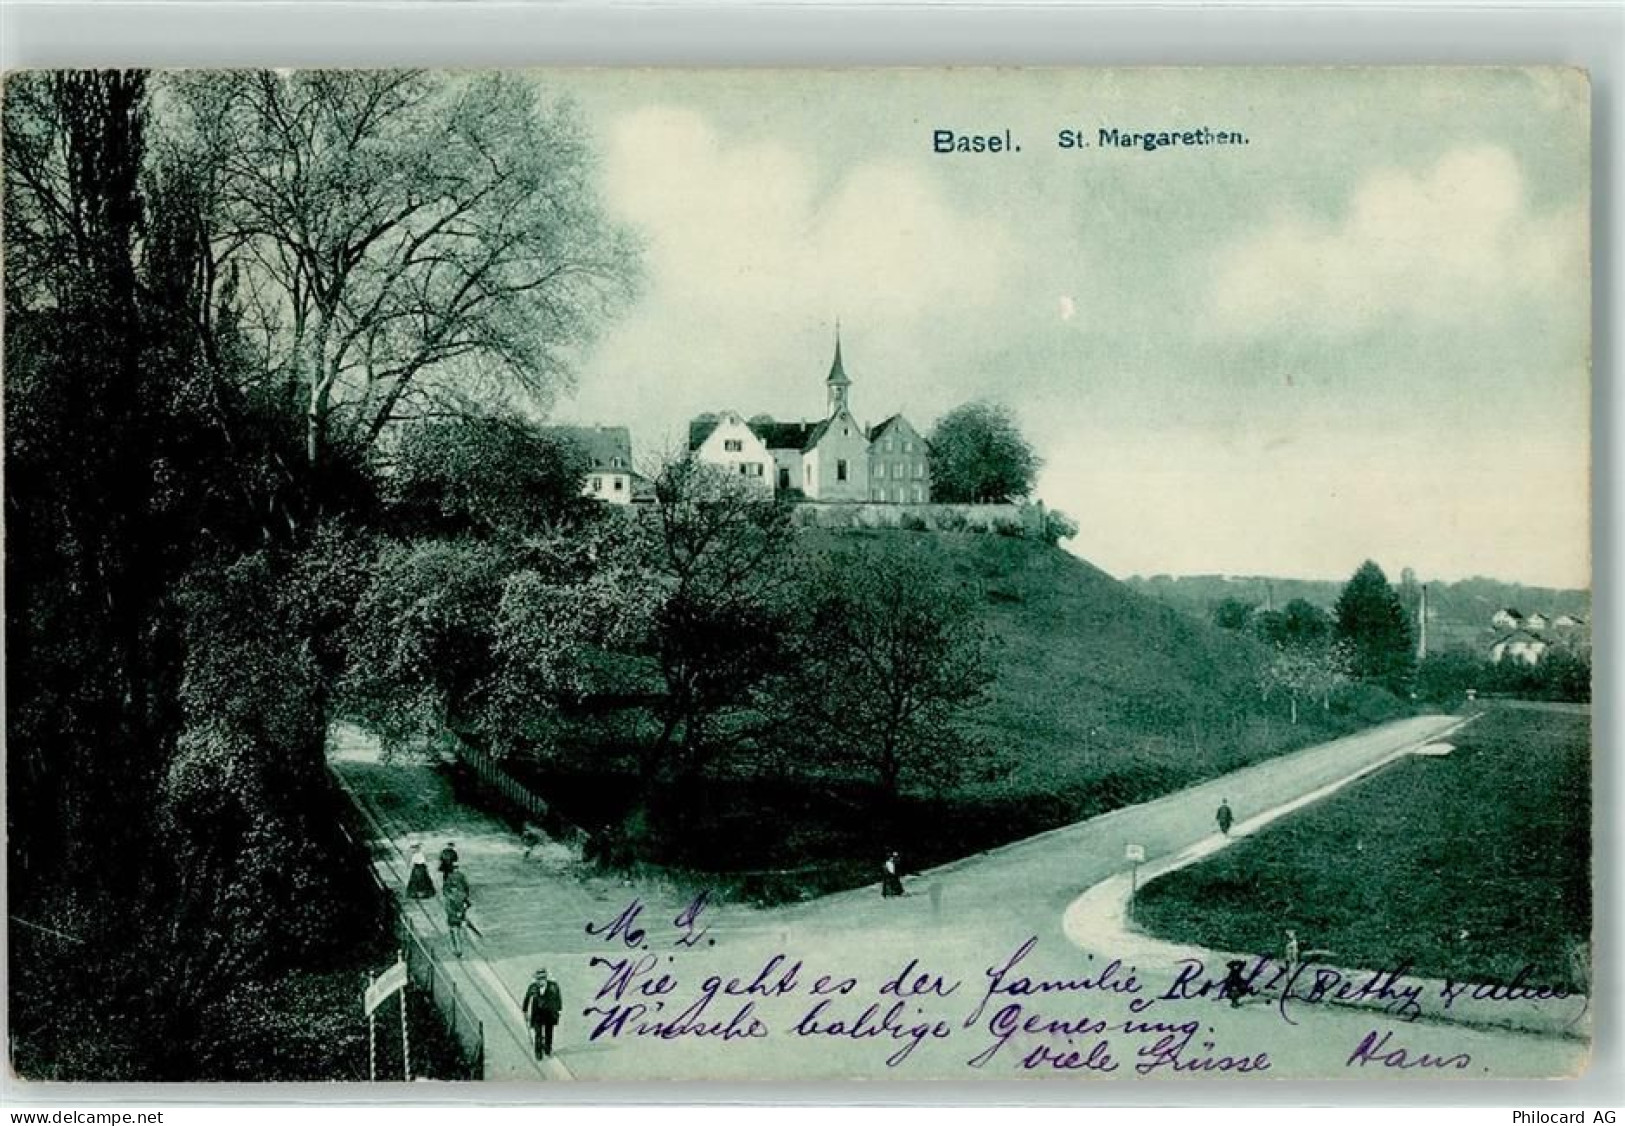 Basel. St. Margarethen.
M. L.
Wie geht es der familie Roth? (Bethy &
Wünsche baldige Genesung.
viele Grüsse Hans.
www.delcampe.net
Philocard AG